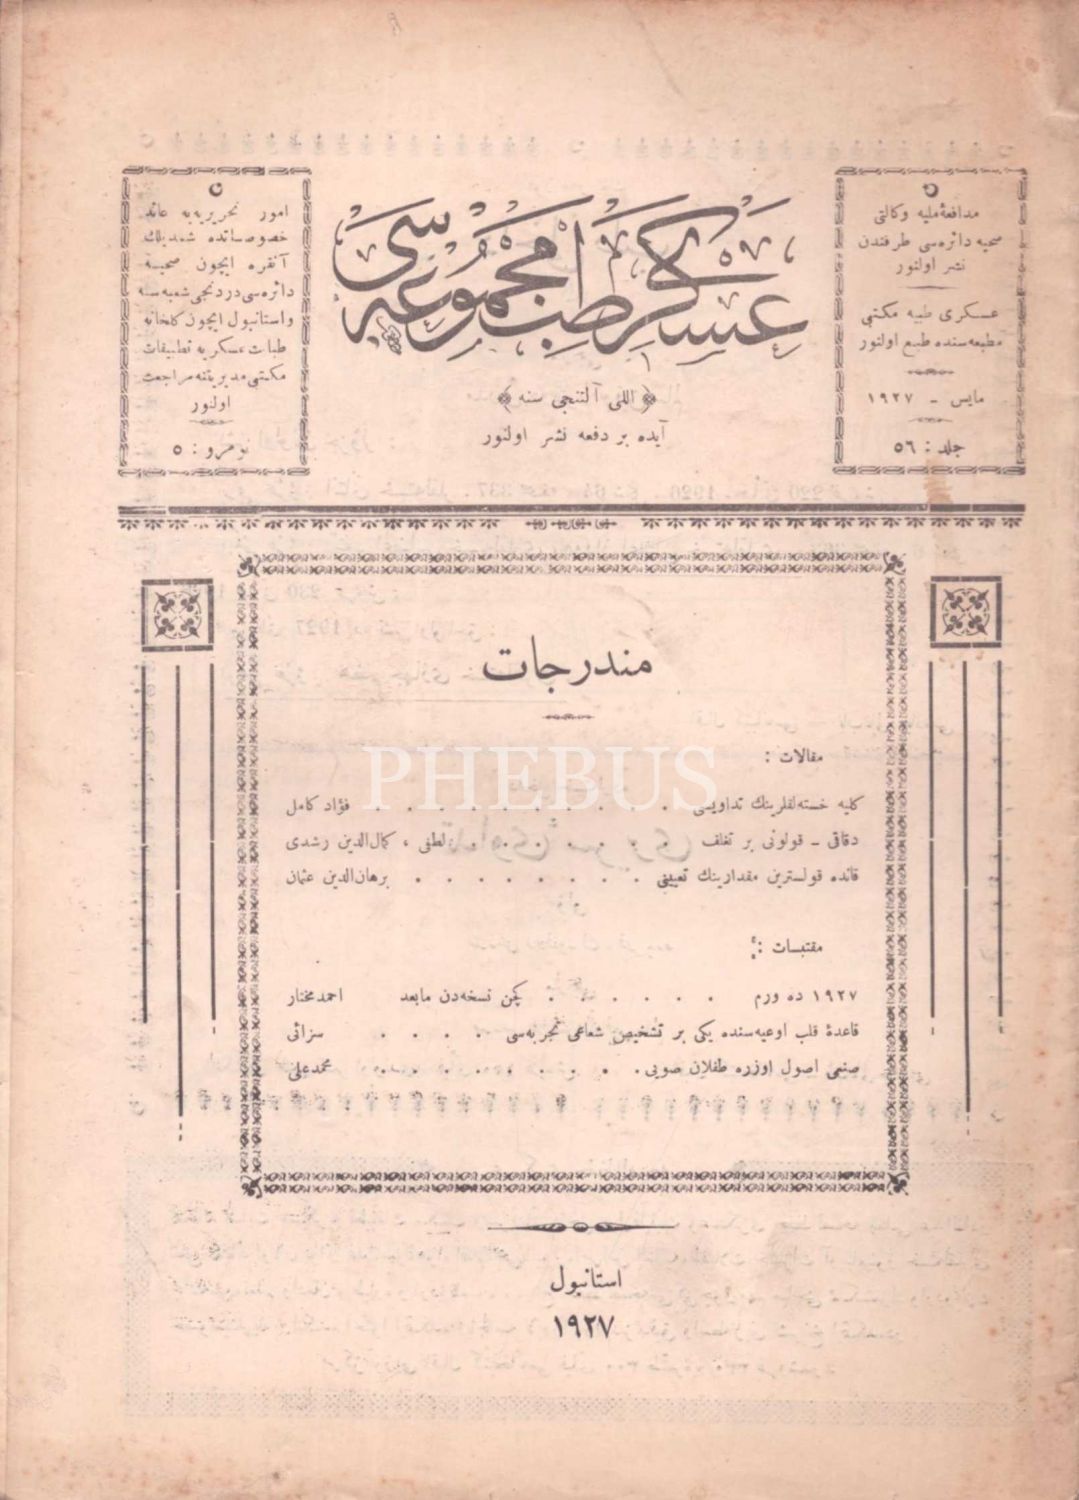 مدافعهٔ ملیه وكالتی
صحیه دائره‌سی طرفندن
نشر اولنور
عسكری طبیه مكتبی
مطبعه‌سنده طبع اولنور
مایس - ١٩٢٧
جلد : ٥٦
عسكری طب مجموعه‌سی
﴿ اللی آلتنجی سنه ﴾
آیده بر دفعه نشر اولنور
امور تحریریه‌یه عائد
خصوصاتده شمدیلك
آنقره ایچون صحیه
دائره‌سی دردنجی شعبه‌سنه
و استانبول ایچون كلخانه
طبابت عسكریه تطبیقات
مكتبی مدیریتنه مراجعت
اولنور
نومرو : ٥
مندرجات
مقالات :
كلیه خسته‌لقلرینك تداویسی . . . . . . . . . فؤاد كامل
دقاقی - قولونی بر تغلف . . . . . . . لطفی ، كمال‌الدین رشدی
قانده قولسترین مقدارینك تعیینی . . . . . . . . . برهان‌الدین عثمان
مقتبسات :
١٩٢٧ ده ورم . . . . . . كچن نسخه‌دن مابعد احمد مختار
قاعدهٔ قلب اوعیه‌سنده یكی بر تشخیص شعاعی تجربه‌سی . . . . . سزائی
صنعی اصول اوزره طفلان صویی . . . . . . . . محمد علی
استانبول
١٩٢٧
PHEBUS